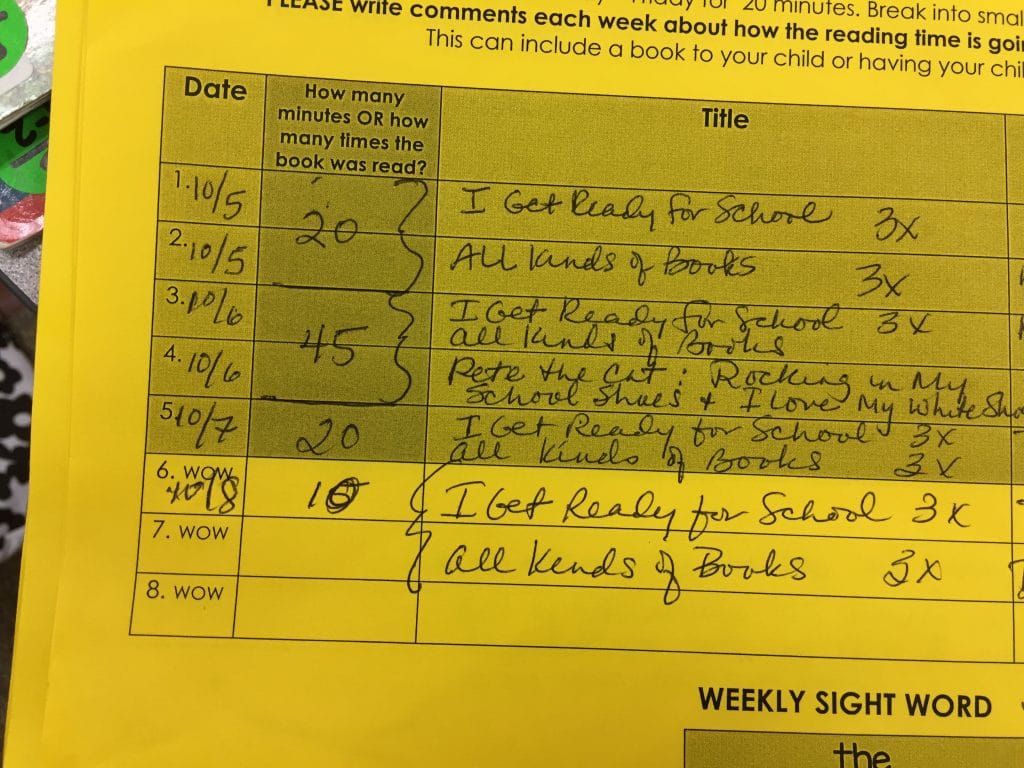 20 minutes. Break into
PLEASE write comments each week about how the reading time is
This can include a book to your child or having your
Date
How many
minutes OR how
many times the
book was read?
Title
1. 10/5
20
I Get Ready for School 3x
2. 10/5
ALL kinds of Books 3x
3. 10/6
45
I Get Ready for School 3x
all kinds of Books
4. 10/6
Pete the Cat: Rocking in My
School Shoes + I Love My White
5. 10/7
20
I Get Ready for School 3x
all kinds of Books 3x
6. WOW
10/8
I Get Ready for School 3x
7. WOW
all Kinds of Books 3x
8. WOW
WEEKLY SIGHT WORD
the